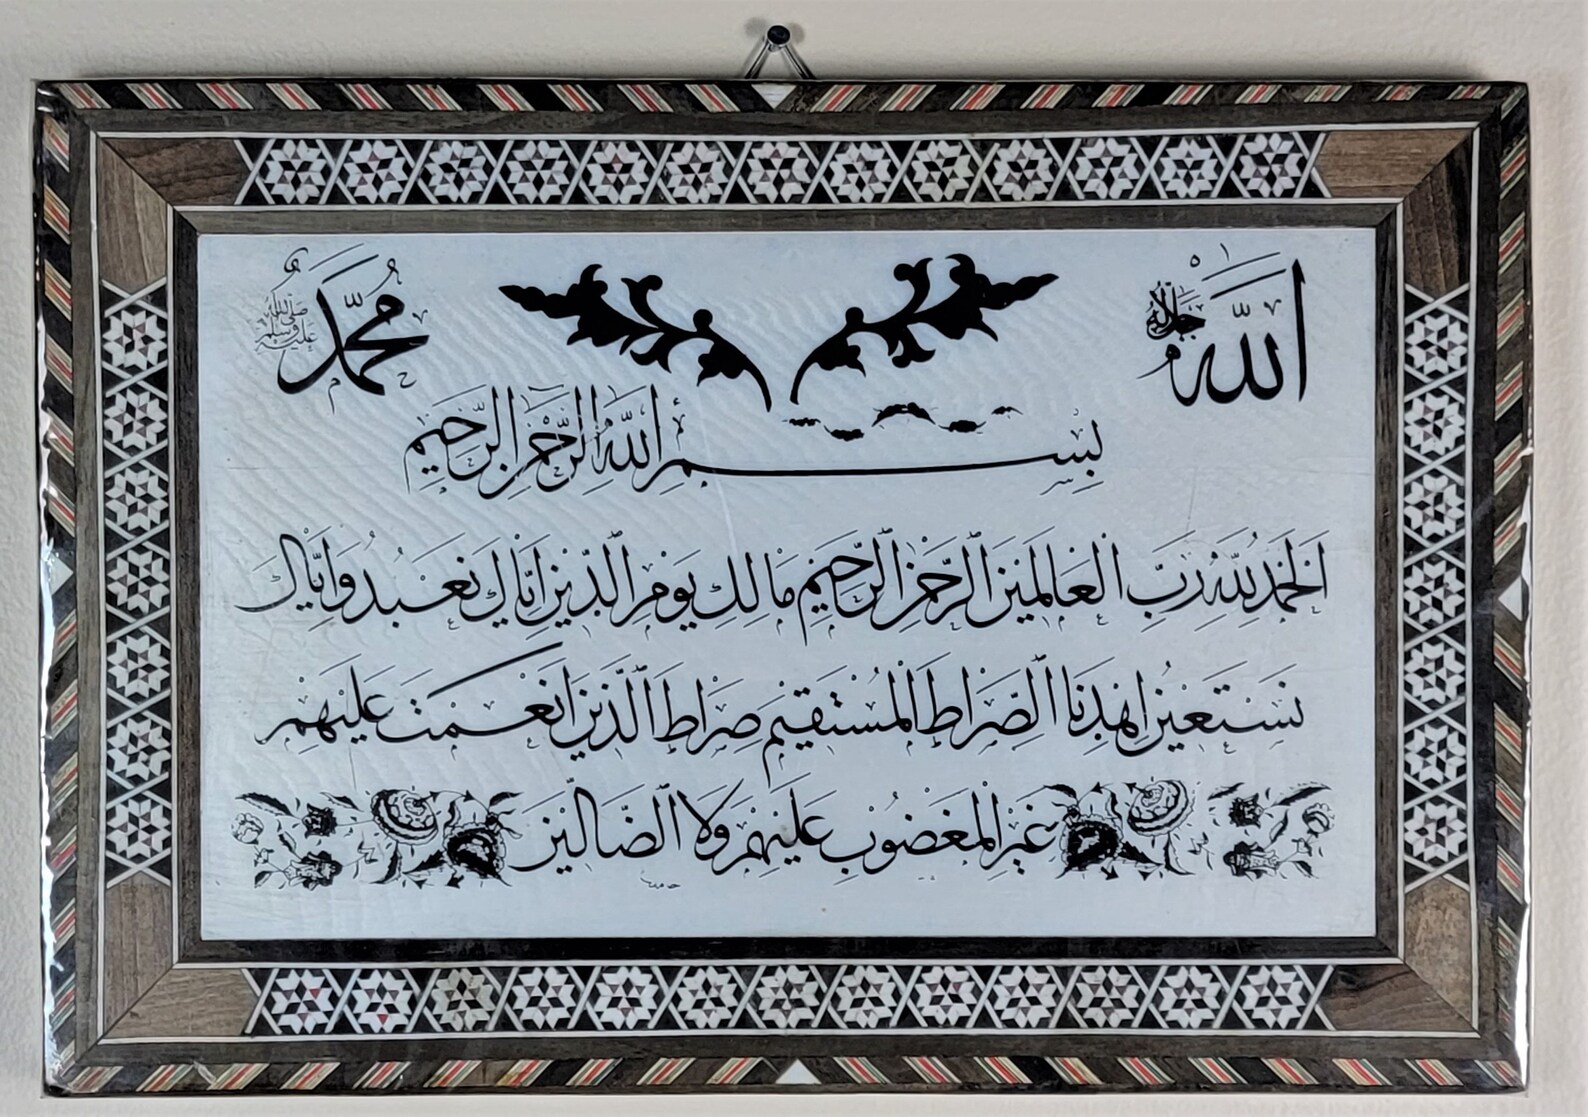 الله جل جلاله
محمد صلى الله عليه وسلم
بِسْمِ اللهِ الرَّحْمٰنِ الرَّحِيمِ
اَلْحَمْدُ لِلّٰهِ رَبِّ الْعَالَمِينَ الرَّحْمٰنِ الرَّحِيمِ مَالِكِ يَوْمِ الدِّينِ اِيَّاكَ نَعْبُدُ وَاِيَّاكَ
نَسْتَعِينُ اِهْدِنَا الصِّرَاطَ الْمُسْتَقِيمَ صِرَاطَ الَّذِينَ اَنْعَمْتَ عَلَيْهِمْ
غَيْرِ الْمَغْضُوبِ عَلَيْهِمْ وَلَا الضَّالِّينَ